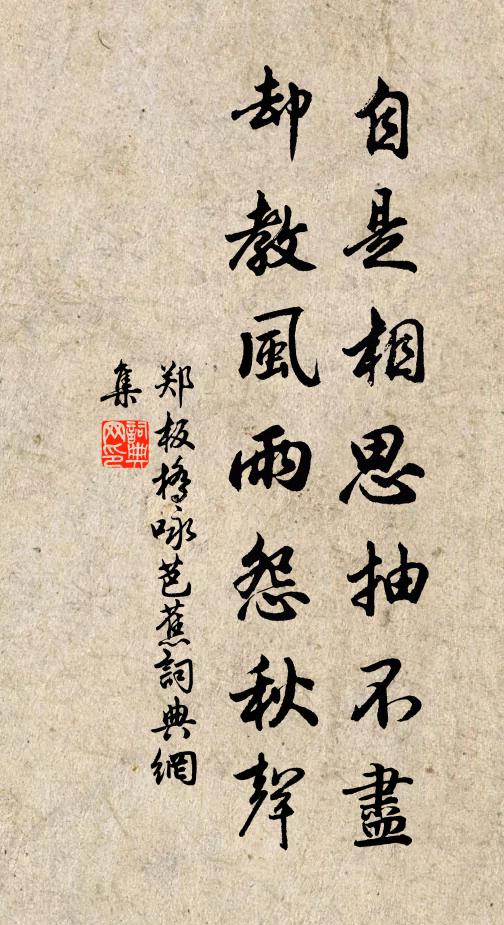 自是相思抽不盡
却教風雨怨秋聲
郑板橋咏芭蕉詞典網
集
詞典
网印